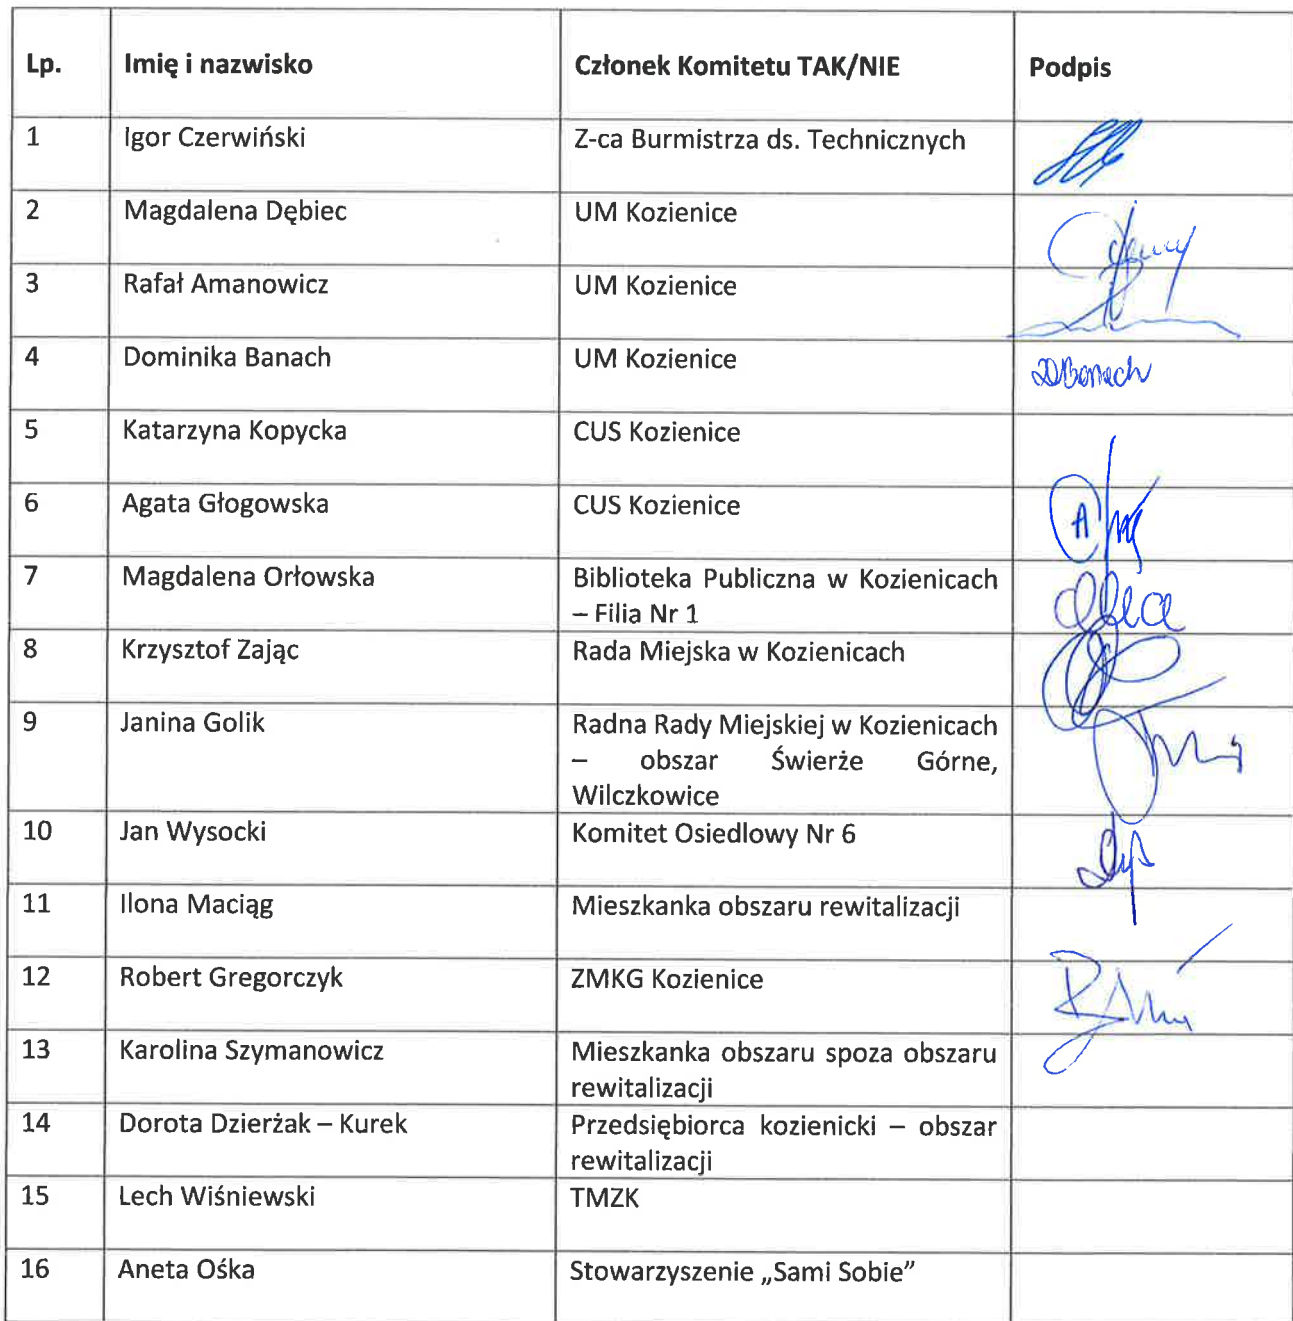 Lp. Imię i nazwisko Członek Komitetu TAK/NIE Podpis
1 Igor Czerwiński Z-ca Burmistrza ds. Technicznych
2 Magdalena Dębiec UM Kozienice
3 Rafał Amanowicz UM Kozienice
4 Dominika Banach UM Kozienice DBanach
5 Katarzyna Kopycka CUS Kozienice
6 Agata Głogowska CUS Kozienice
7 Magdalena Orłowska Biblioteka Publiczna w Kozienicach
– Filia Nr 1
8 Krzysztof Zając Rada Miejska w Kozienicach
9 Janina Golik Radna Rady Miejskiej w Kozienicach
– obszar Świerże Górne,
Wilczkowice
10 Jan Wysocki Komitet Osiedlowy Nr 6
11 Ilona Maciąg Mieszkanka obszaru rewitalizacji
12 Robert Gregorczyk ZMKG Kozienice
13 Karolina Szymanowicz Mieszkanka obszaru spoza obszaru
rewitalizacji
14 Dorota Dzierżak – Kurek Przedsiębiorca kozienicki – obszar
rewitalizacji
15 Lech Wiśniewski TMZK
16 Aneta Ośka Stowarzyszenie „Sami Sobie”